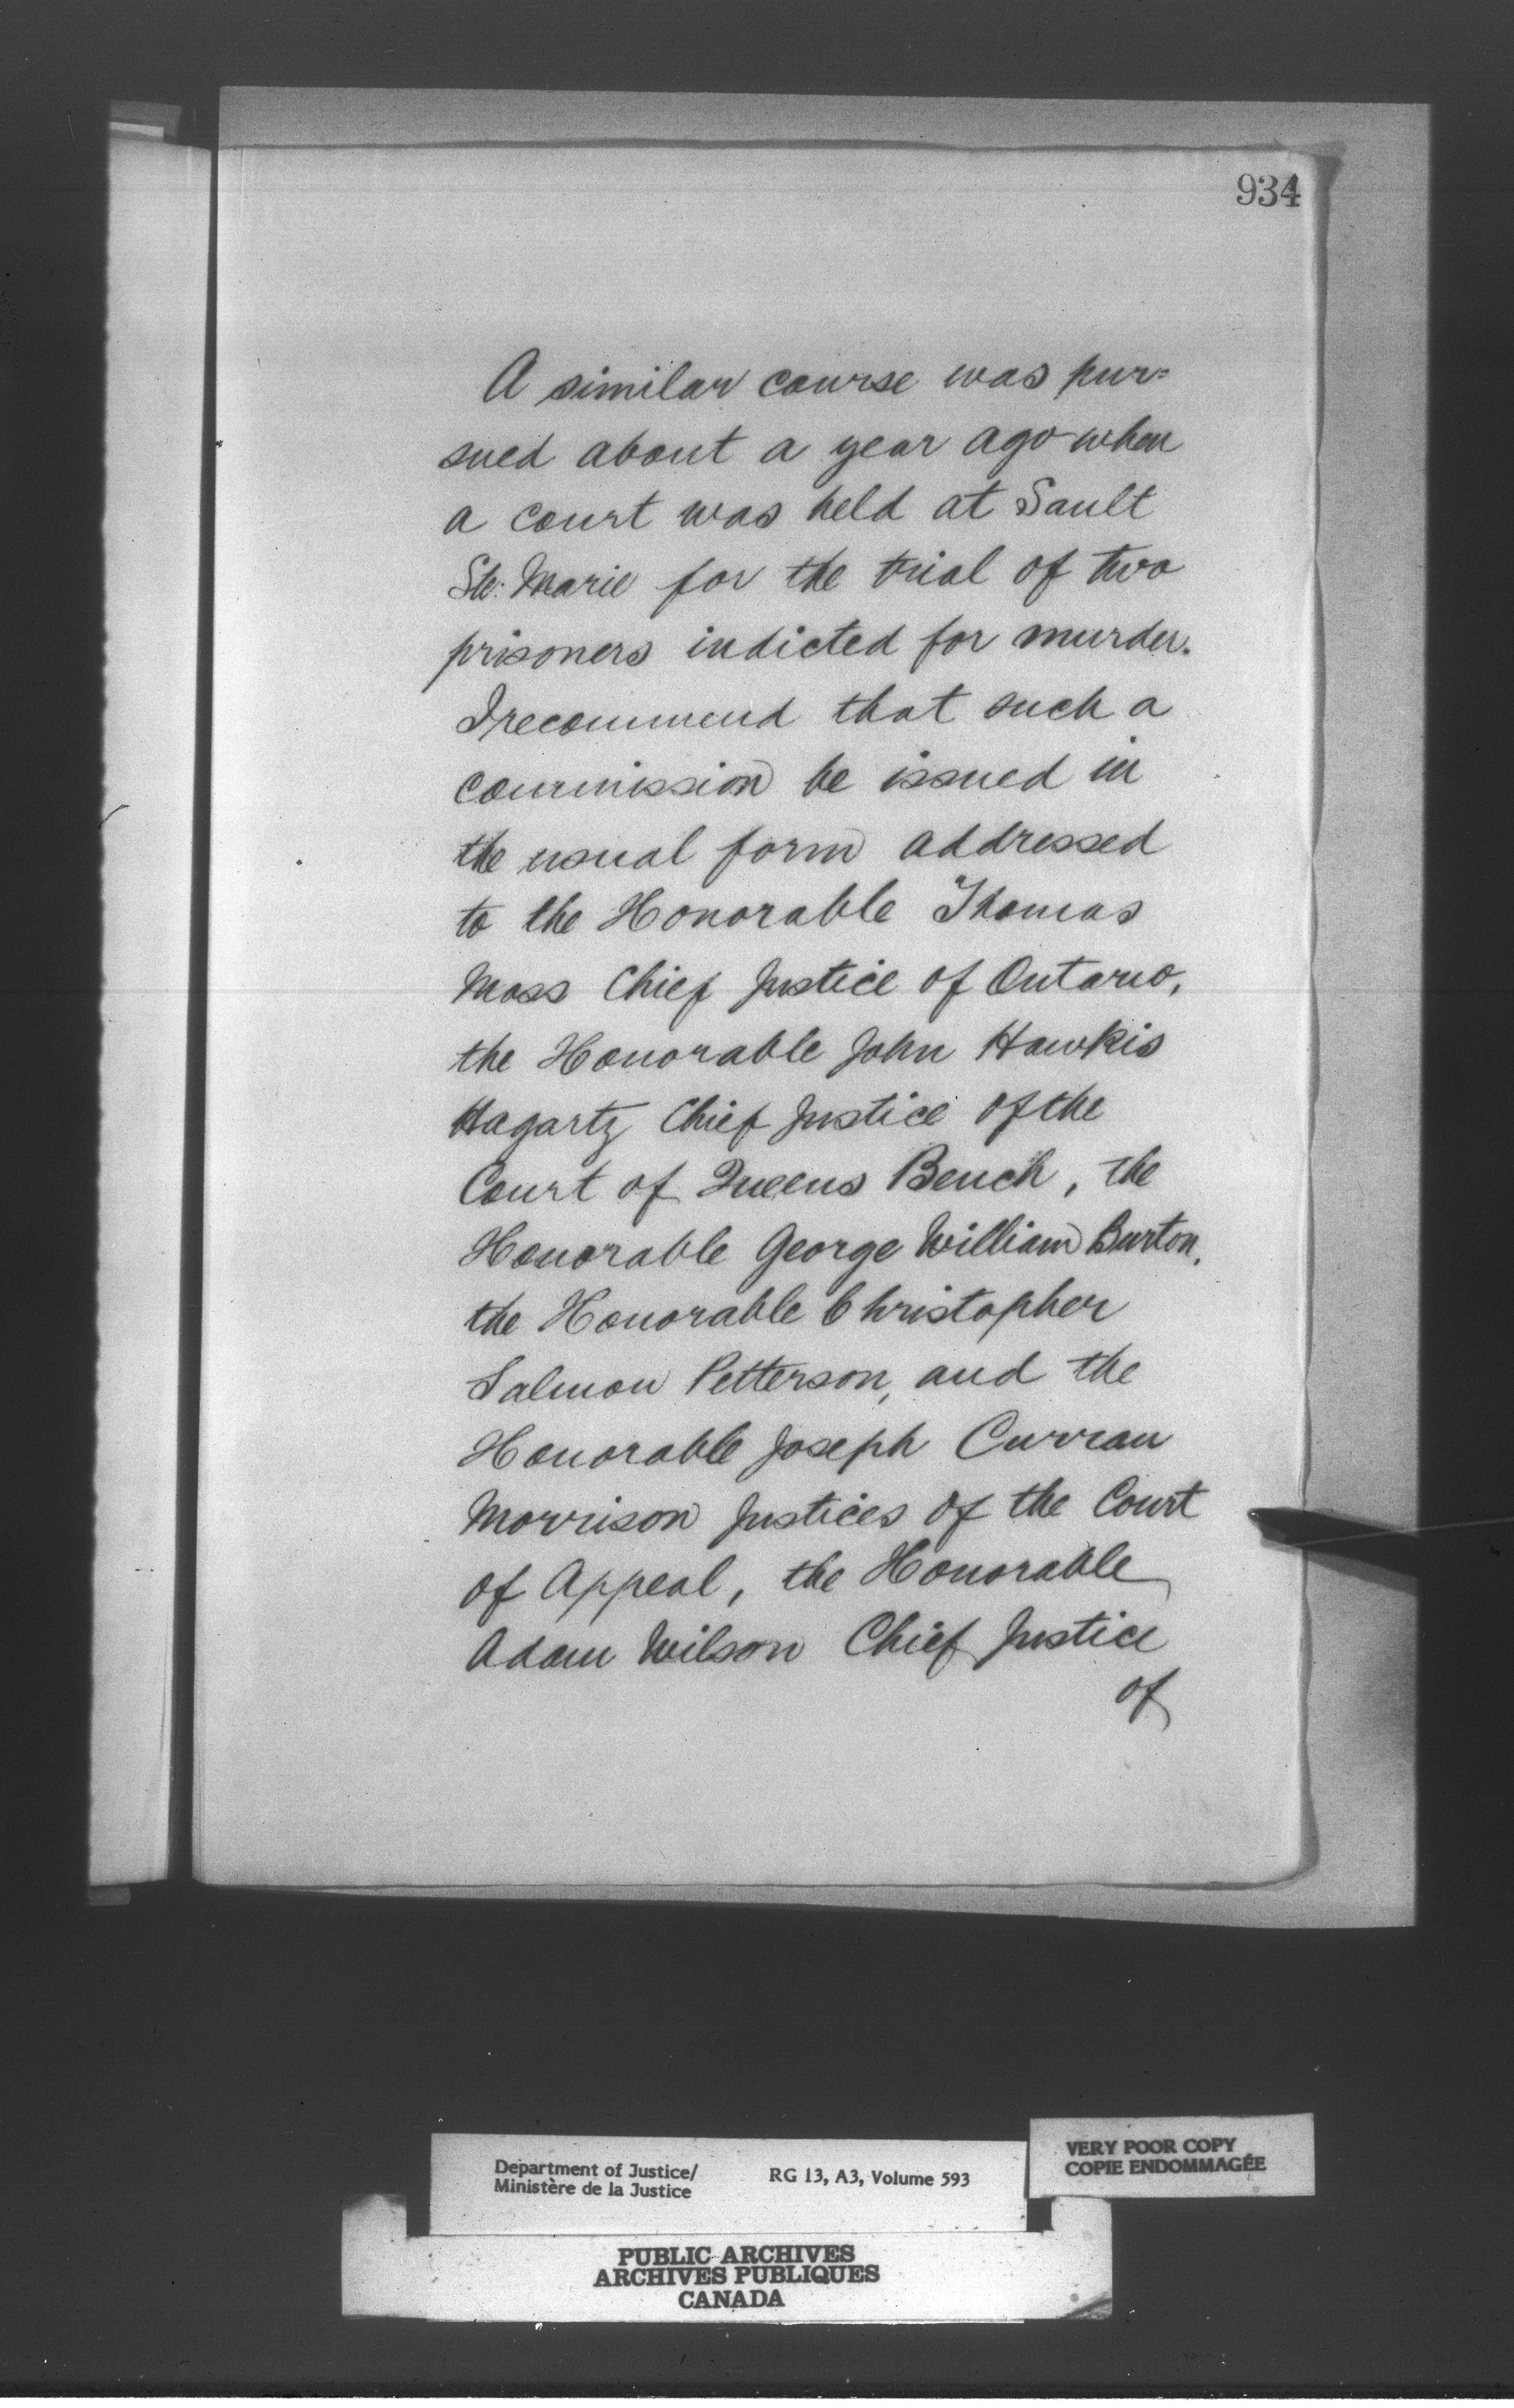 934
A similar course was pur=
sued about a year ago when
a court was held at Sault
Ste: Marie for the trial of two
prisoners indicted for murder.
I recommend that such a
commission be issued in
the usual form addressed
to the Honorable Thomas
Moss Chief Justice of Ontario,
the Honorable John Hawkis
Hagarty Chief Justice of the
Court of Queens Bench, the
Honorable George William Burton,
the Honorable Christopher
Salmon Petterson, and the
Honorable Joseph Curran
Morrison Justices of the Court
of Appeal, the Honorable
Adam Wilson Chief Justice
of
Department of Justice/ RG 13, A3, Volume 593
Ministère de la Justice
VERY POOR COPY
COPIE ENDOMMAGÉE
PUBLIC ARCHIVES
ARCHIVES PUBLIQUES
CANADA